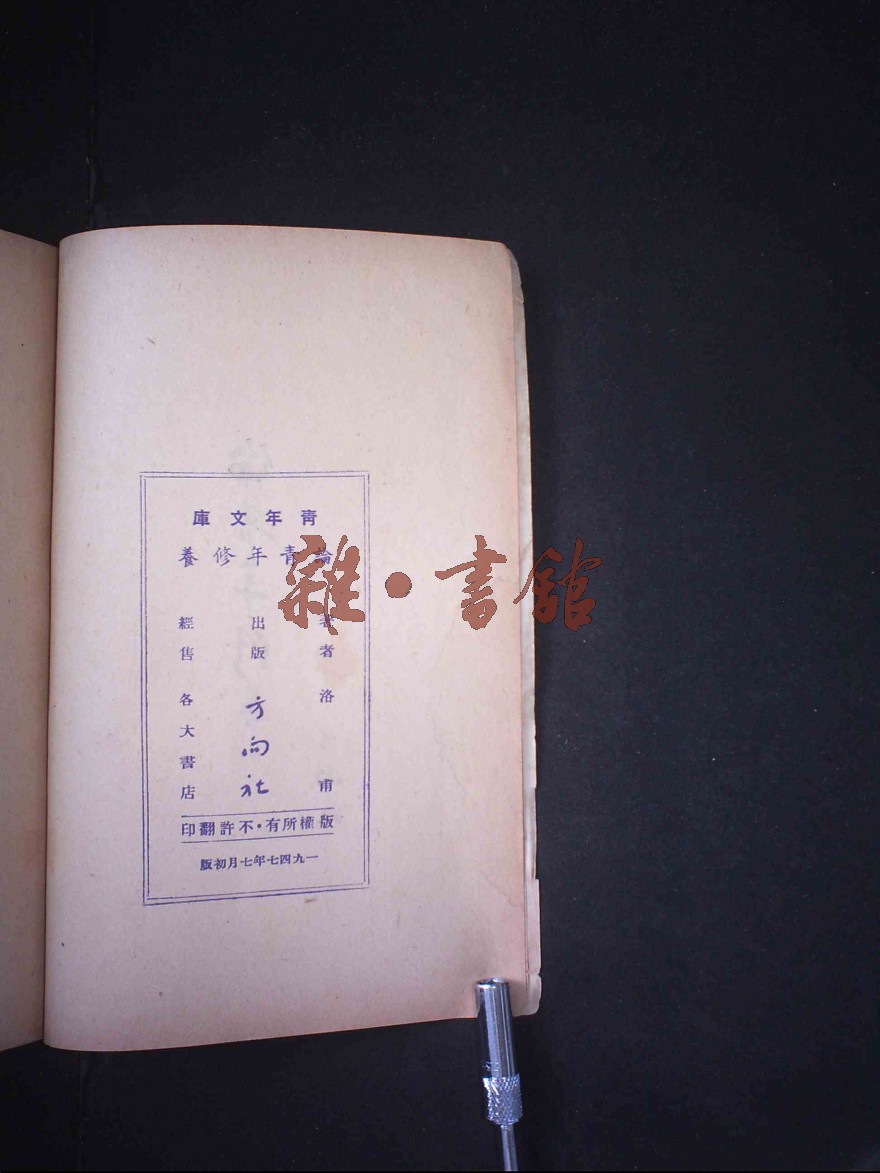 青年文庫
論青年修養
著者 洛甫
出版 方向社
經售 各大書店
版權所有・不許翻印
一九四七年七月初版
雜・書館